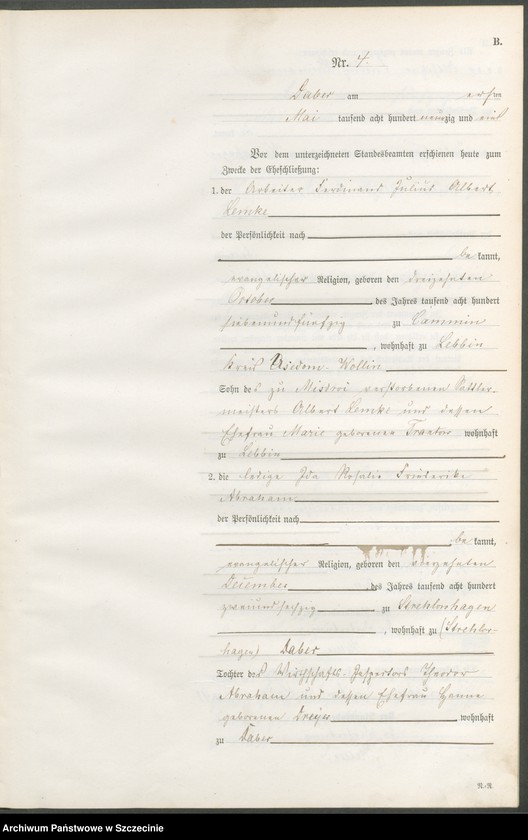 B.
Nr. 4.
Daber am ersten
Mai tausend acht hundert neunzig und eins
Vor dem unterzeichneten Standesbeamten erschienen heute zum
Zwecke der Eheschließung:
1. der Arbeiter Ferdinand Julius Albert
Lemke
der Persönlichkeit nach
be kannt,
evangelischer Religion, geboren den dreizehnten
October des Jahres tausend acht hundert
siebenundfünfzig zu Cammin
, wohnhaft zu Lebbin
Kreis Usedom-Wollin
Sohn des zu Misdroi verstorbenen Sattler-
meisters Albert Lemke und dessen
Ehefrau Marie geborenen wohnhaft
zu Lebbin
2. die ledige Ida Rosalie Friederike
Abraham
der Persönlichkeit nach
be kannt,
evangelischer Religion, geboren den
Dezember des Jahres tausend acht hundert
zweiundsechzig zu Strehlowhagen
, wohnhaft zu (Strehlow-
hagen) Daber
Tochter des Wirthschafts-Inspectors Theodor
Abraham und dessen Ehefrau Hanne
geborenen Dreyer wohnhaft
zu Daber
N.-R.
Archiwum Państwowe w Szczecinie